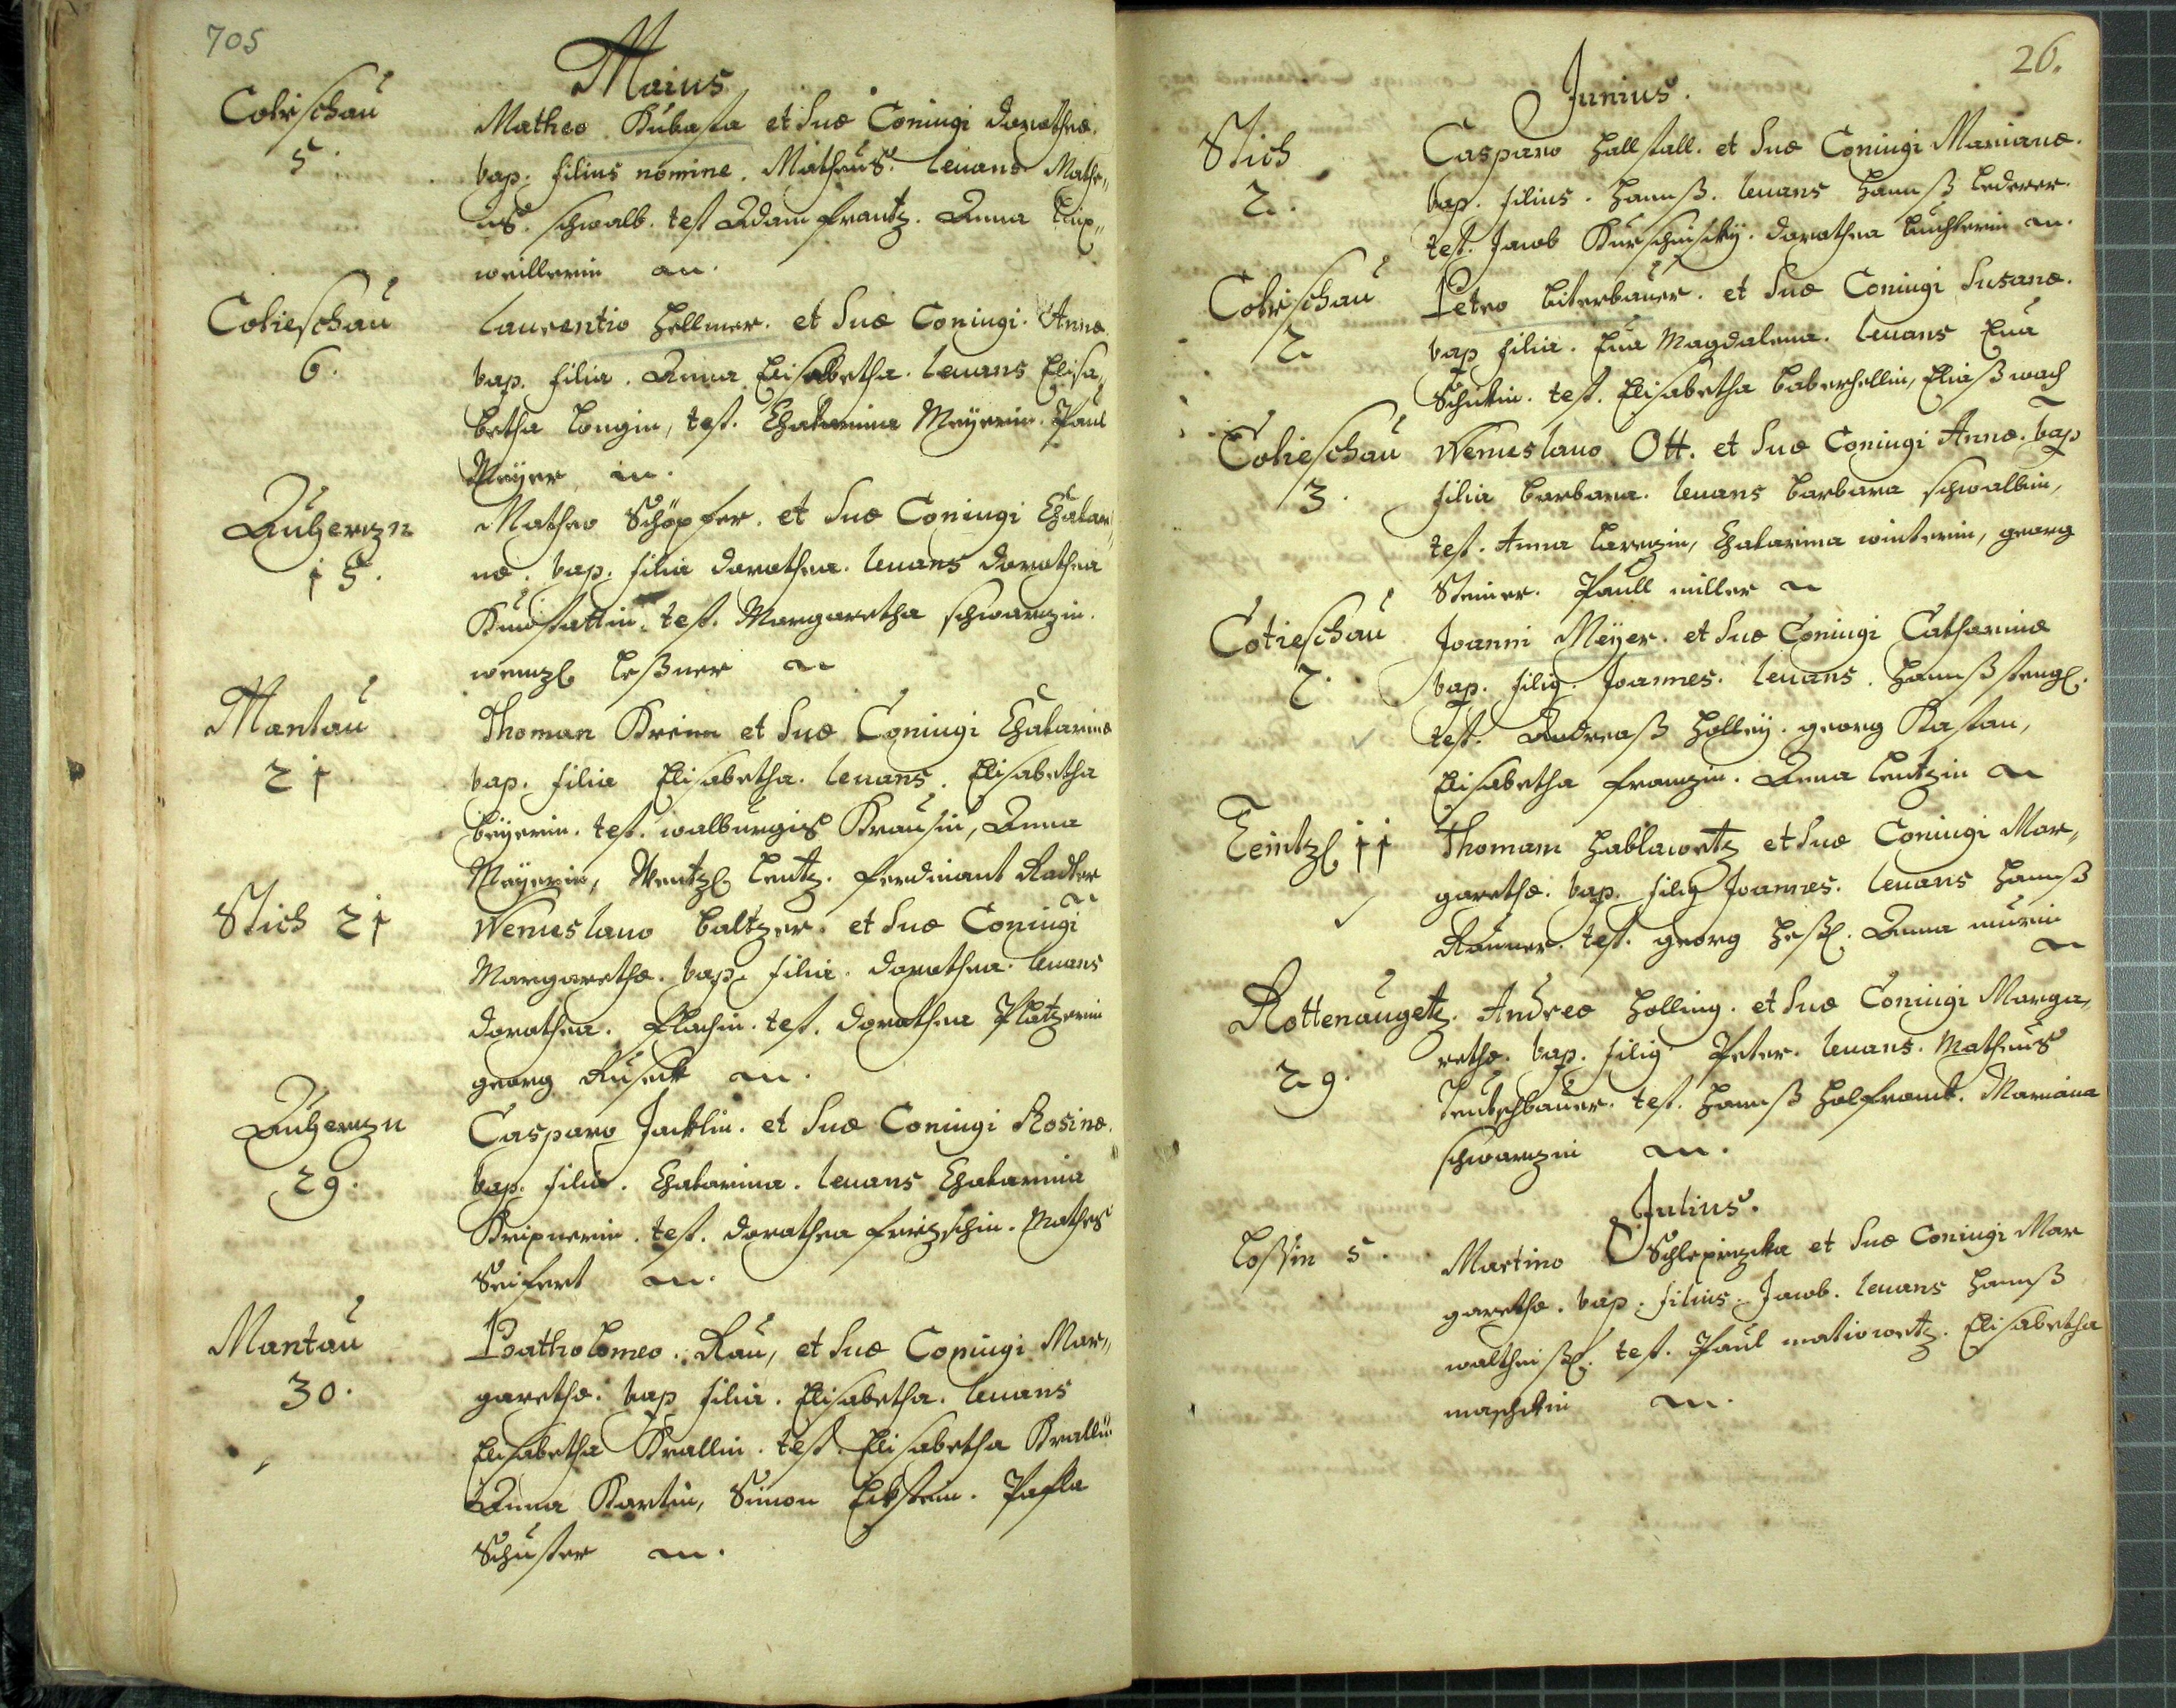 705
Maius
Cotieschau
5.
Matheo Kubasta et Suæ Coniugi Dorotheæ.
bap. filius nomine. Matheus. levans Mathe„
us. schwalb. test Adam frantz. Anna
weillerin m.
Cotieschau
6.
Laurentio Hellmer. et Suæ Coniugi. Annæ
bap. filia. Anna Elisabetha. levans Elisa„
betha Longin, test. Chatarina Meÿerin. Paul
Meÿer m.
Auherzn
15.
Matheo Schöpfer. et Suæ Coniugi Chatari„
næ. bap. filia Dorothea. levans Dorothea
Kunstattin. test. Margaretha schwarzin.
wenzl Leßner m
Mantau
21
Thoman Krinn et Suæ Coniugi Chatarinæ
bap. filia Elisabetha. levans. Elisabetha
beÿerin. test. walburgis Krausin, Anna
Meÿerin, Wentzl Lentz. ferdinant Radler
m
Stich 21
Wenceslauo baltzer. et Suæ Coniugi
Margarethæ. bap. filia. Dorothea. levans
Dorothea. flachin. test. Dorothea Platzerin
georg Ruseck m.
Auherzn
29.
Casparo Jacklin. et Suæ Coniugi Rosinæ.
bap. filia. Chatarina. levans Chatarina
Kripnerin. test. Dorothea fritzschin. Mathes
Seifert m.
Mantau
30.
Batholomeo. Rau, et Suæ Coniugi Mar„
garethæ. bap filia. Elisabetha. levans
Elisabetha Krallin. test. Elisabetha Krallin
Anna Kartin, Simon Eckstein. Pafla
Schuster m.
26.
Junius.
Stich
2.
Casparo Hallstall. et Suæ Coniugi Marianæ.
bap. filius. Hannß. levans Hannß Lederer.
test. Jacob Kurschinskÿ. Dorothea m.
Cotieschau
2
Petro biterbauer. et Suæ Coniugi Susanæ.
bap filia. Eua Magdalena. levans Eua
Schukin. test. Elisabetha haberhellin, Eliaß wach
Cotieschau
3.
Wenceslauo Ott. et Suæ Coniugi Annæ. bap
filia barbara. levans barbara schwalbin,
test. Anna Larenzin, Chatarina winterin, georg
Steiner. Paull miller m
Cotieschau
7.
Joanni Meÿer. et Suæ Coniugi Catharinæ
bap. filig. Joannes. levans. Hannß stengl.
test. Andreaß Holleÿ. georg Kastan,
Elisabetha franzin. Anna Lentzin m
Teintzl 11
Thomam Hablawetz et Suæ Coniugi Mar„
garethæ. bap. filig Joannes. levans Hannß
Rauner. test. georg Heßl. Anna murin
m
Rottenaugetz.
29.
Andreo Holling. et Suæ Coniugi Marga„
rethæ. bap. filig. Peter. levans. Matheus
Teutschbauer. test. Hannß Holfranck. Mariana
schwarzin m.
Julius.
Loßin 5.
Martino Schlepizka et Suæ Coniugi Mar
garethæ. bap. filius. Jacob. levans Hannß
waltheißl. test. Paul matiowetz. Elisabetha
maschkin m.